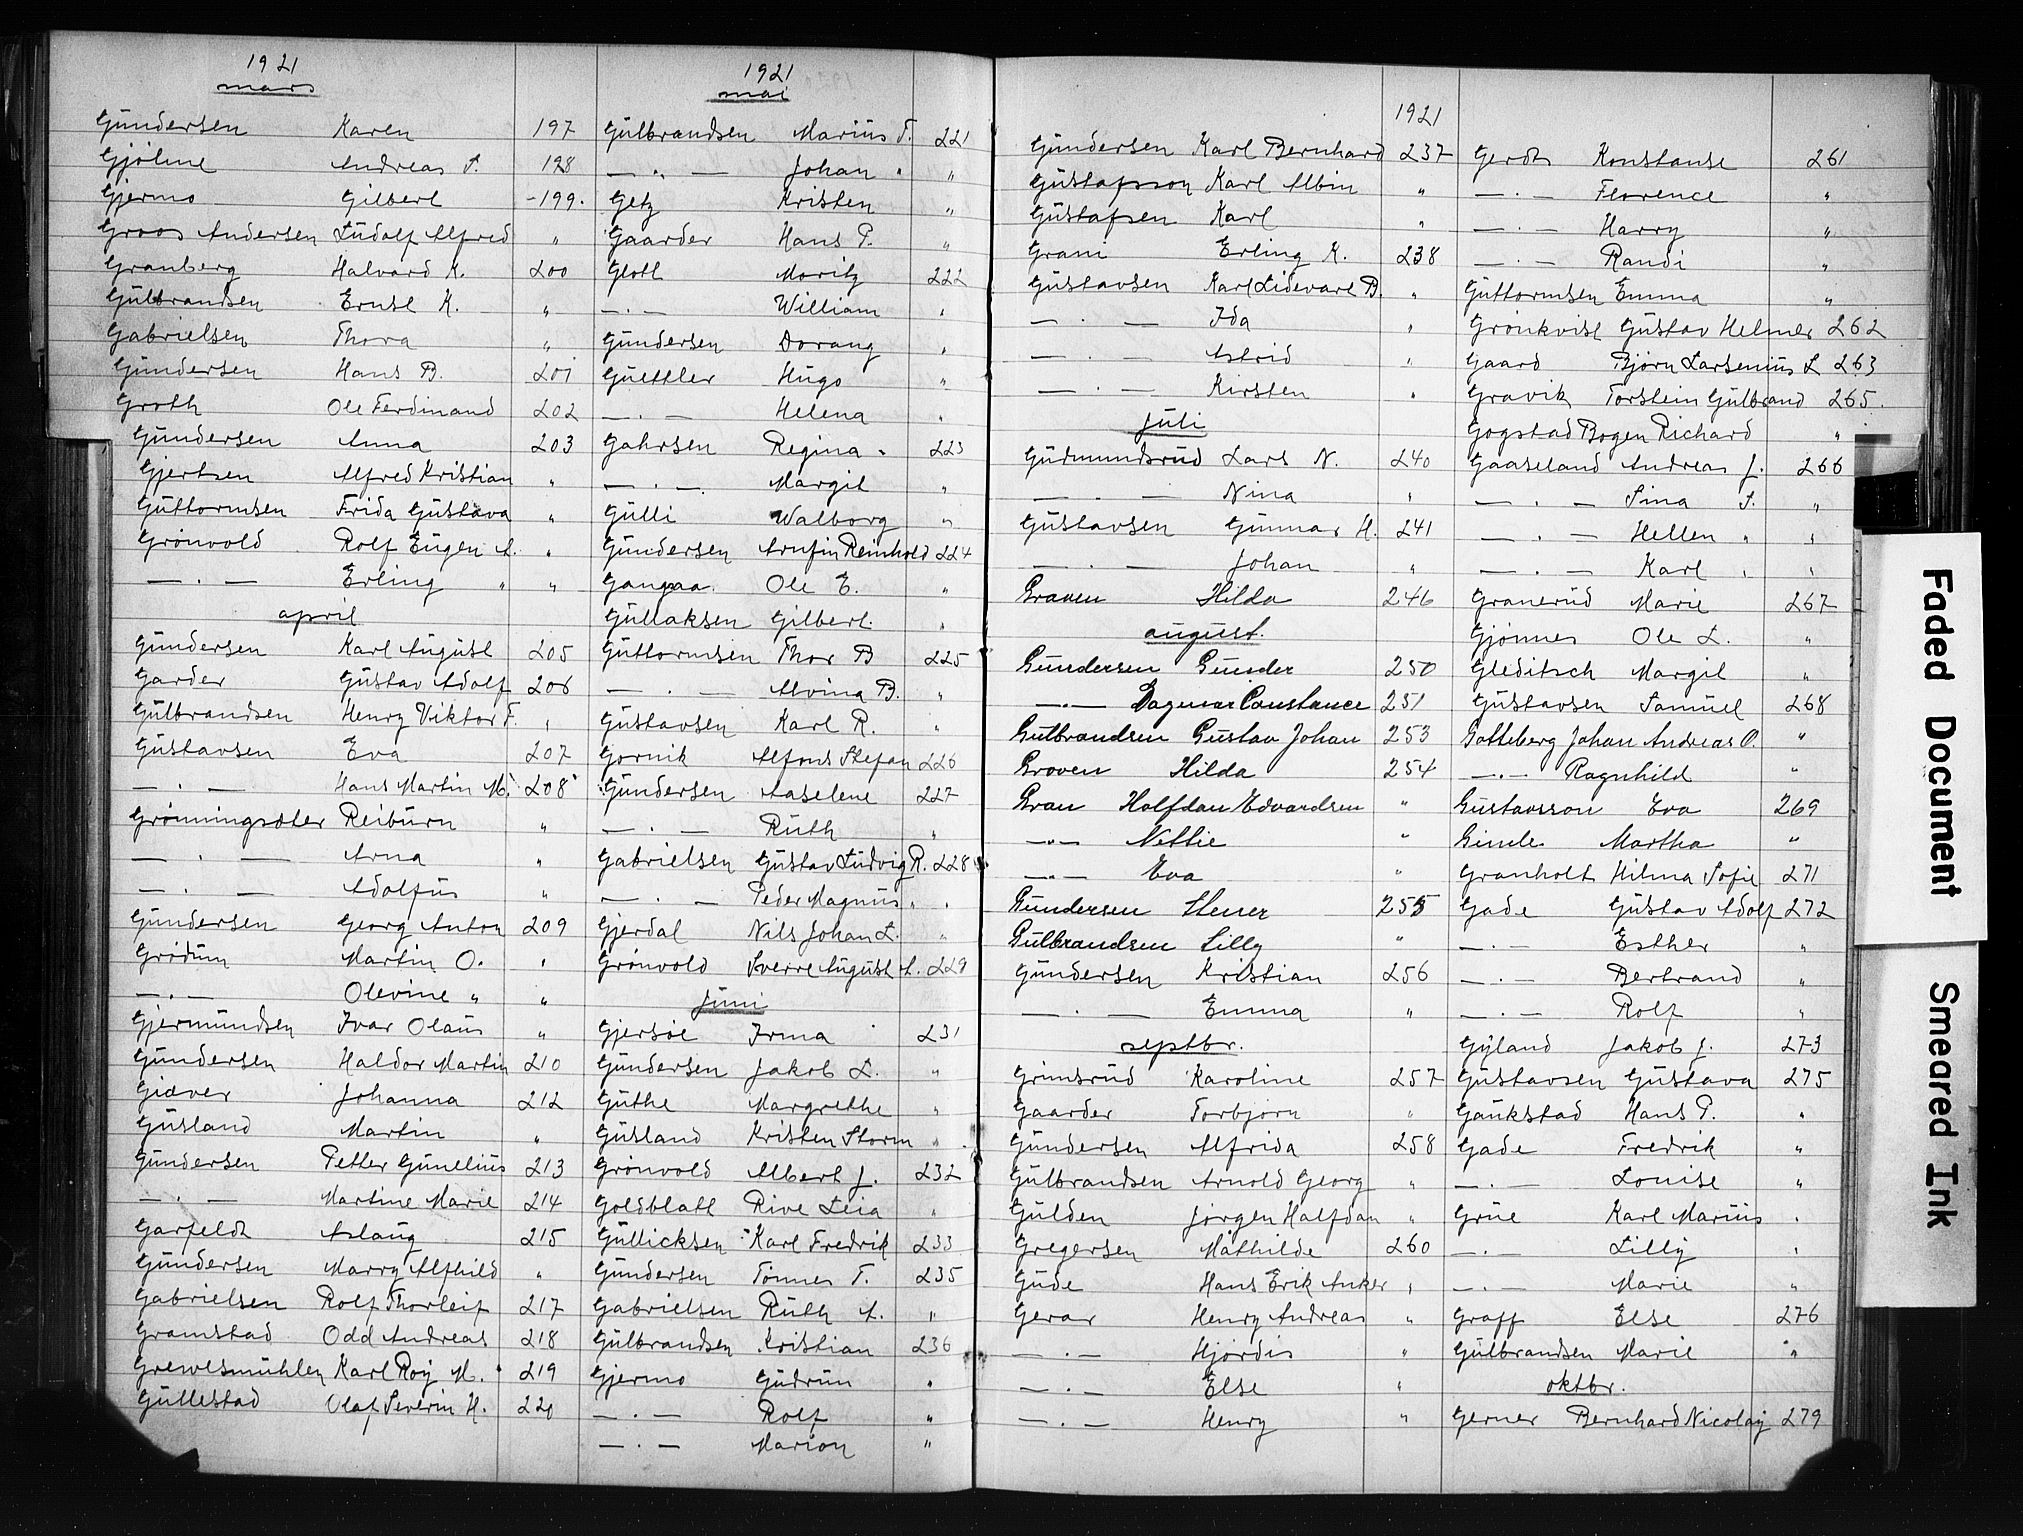 1921
mars
Gundersen Karen 197
Gjølme Andreas S. 198
Gjermo Gilbert -199.
Groos Andersen Ludolf Alfred "
Granberg Halvard K. 200
Gulbrandsen Ernst K. "
Gabrielsen Thora "
Gundersen Hans B. 201
Groth Ole Ferdinand 202
Gundersen Anna 203
Gjertsen Alfred Kristian "
Guttormsen Frida Gustava "
Grønvold Rolf Eugen A. "
— " — Erling " "
april
Gundersen Karl August 205
Garder Gustav Adolf 206
Gulbrandsen Henry Viktor F. "
Gustavsen Eva 207
— " — Hans Martin M. 208
Grønningsæter Reiburn "
— " — Arna "
— " — Adolfus "
Gundersen Georg Anton 209
Grødum Martin O. "
— " — Olevine " "
Gjermundsen Ivar Olaus "
Gundersen Haldor Martin 210
Giæver Johanna 212
Gusland Martin "
Gundersen Petter Gunelius 213
— " — Martine Marie 214
Garfeldt Aslaug 215
Gundersen Marry Alfhild "
Gabrielsen Rolf Thorleif 217
Gramstad Odd Andreas 218
Grewesmühlen Karl Roy M. 219
Gullestad Olaf Severin H. 220
1921
mai
Gulbrandsen Marius F. 221
— " — Johan " "
Getz Kristen "
Gaarder Hans P. "
Glott Moritz 222
— " — William "
Gundersen Dorang "
Guettler Hugo "
— " — Helena "
Gahrsen Regina 223
— " — Margit "
Gulli Walborg "
Gundersen Arnfin Reinhold 224
Gangaa Ole E. "
Gullaksen Gilbert. "
Guttormsen Thor B 225
— " — Alvina B. "
Gustavsen Karl R. "
Gornik Alfons Stefan 226
Gundersen Aaselene 227
— " — Ruth "
Gabrielsen Gustav Ludvig R. 228
— " — Peder Magnus " "
Gjerdal Nils Johan L. "
Grønvold Sverre August A. 229
juni
Gjersøe Irma 231
Gundersen Jakob L. "
Guthe Margrethe "
Gusland Kristen Storm "
Grønvold Albert J. 232
Goldblatt Rive Leia "
Gullicksen Karl Fredrik 233
Gundersen Tønnes T. 235
Gabrielsen Ruth A. "
Gulbrandsen Kristian 236
Gjermo Gudrun "
— " — Rolf "
— " — Marion "
1921
Gundersen Karl Bernhard 237
Gustafsson Karl Albin "
Gustafsen Karl "
Grani Erling K. 238
Gustavsen Karl Lidevart B. "
— " — Ida "
— " — Astrid "
— " — Kirsten "
juli
Gudmundsrud Lars N. 240
— " — Nina "
Gustavsen Gunnar H. 241
— " — Johan "
Graven Hilda 246
august.
Gundersen Gunder 250
— " — Dagmar Constance 251
Gulbrandsen Gustav Johan 253
Groven Hilda 254
Gran Halfdan Edvardsen "
— " — Nettie "
— " — Eva "
Gundersen Stener 255
Gulbrandsen Lilly "
Gundersen Kristian 256
— " — Emma "
septbr.
Grimsrud Karoline 257
Gaarder Torbjørn "
Gundersen Alfrida 258
Gulbrandsen Arnold Georg "
Gulden Jørgen Halfdan "
Gregersen Mathilde 260
Gude Hans Erik Anker "
Gerar Henry Andreas "
— " — Hjørdis "
— " — Else "
— " — Henry "
Gerdt Konstanse 261
— " — Florence "
— " — Harry "
— " — Randi "
Guttormsen Emma "
Grønkvist Gustav Helmer 262
Gaard Bjørn Larsenius L 263
Gravik Torstein Gulbrand 265.
Gogstad Bogen Richard "
Gaaseland Andreas J. 266
— " — Sina S. "
— " — Hellen " "
— " — Karl " "
Granerud Marie 267
Gjønnes Ole L. "
Gleditsch Margit "
Gustavsen Samuel 268
Gotteberg Johan Andreas O. "
— " — Ragnhild "
Gustavsson Eva 269
Ginde Martha "
Granholt Hilma Sofie 271
Gade Gustav Adolf 272
— " — Esther "
— " — Bertrand "
— " — Rolf "
Gyland Jakob J. 273
Gustavsen Gustava 275
Gaukstad Hans P. "
Gade Fredrik "
— " — Louise "
Grue Karl Marius "
— " — Lilly "
— " — Marie "
Graff Else 276
Gulbrandsen Marie "
oktbr.
Gerner Bernhard Nicolay 279
Faded Document
Smeared Ink